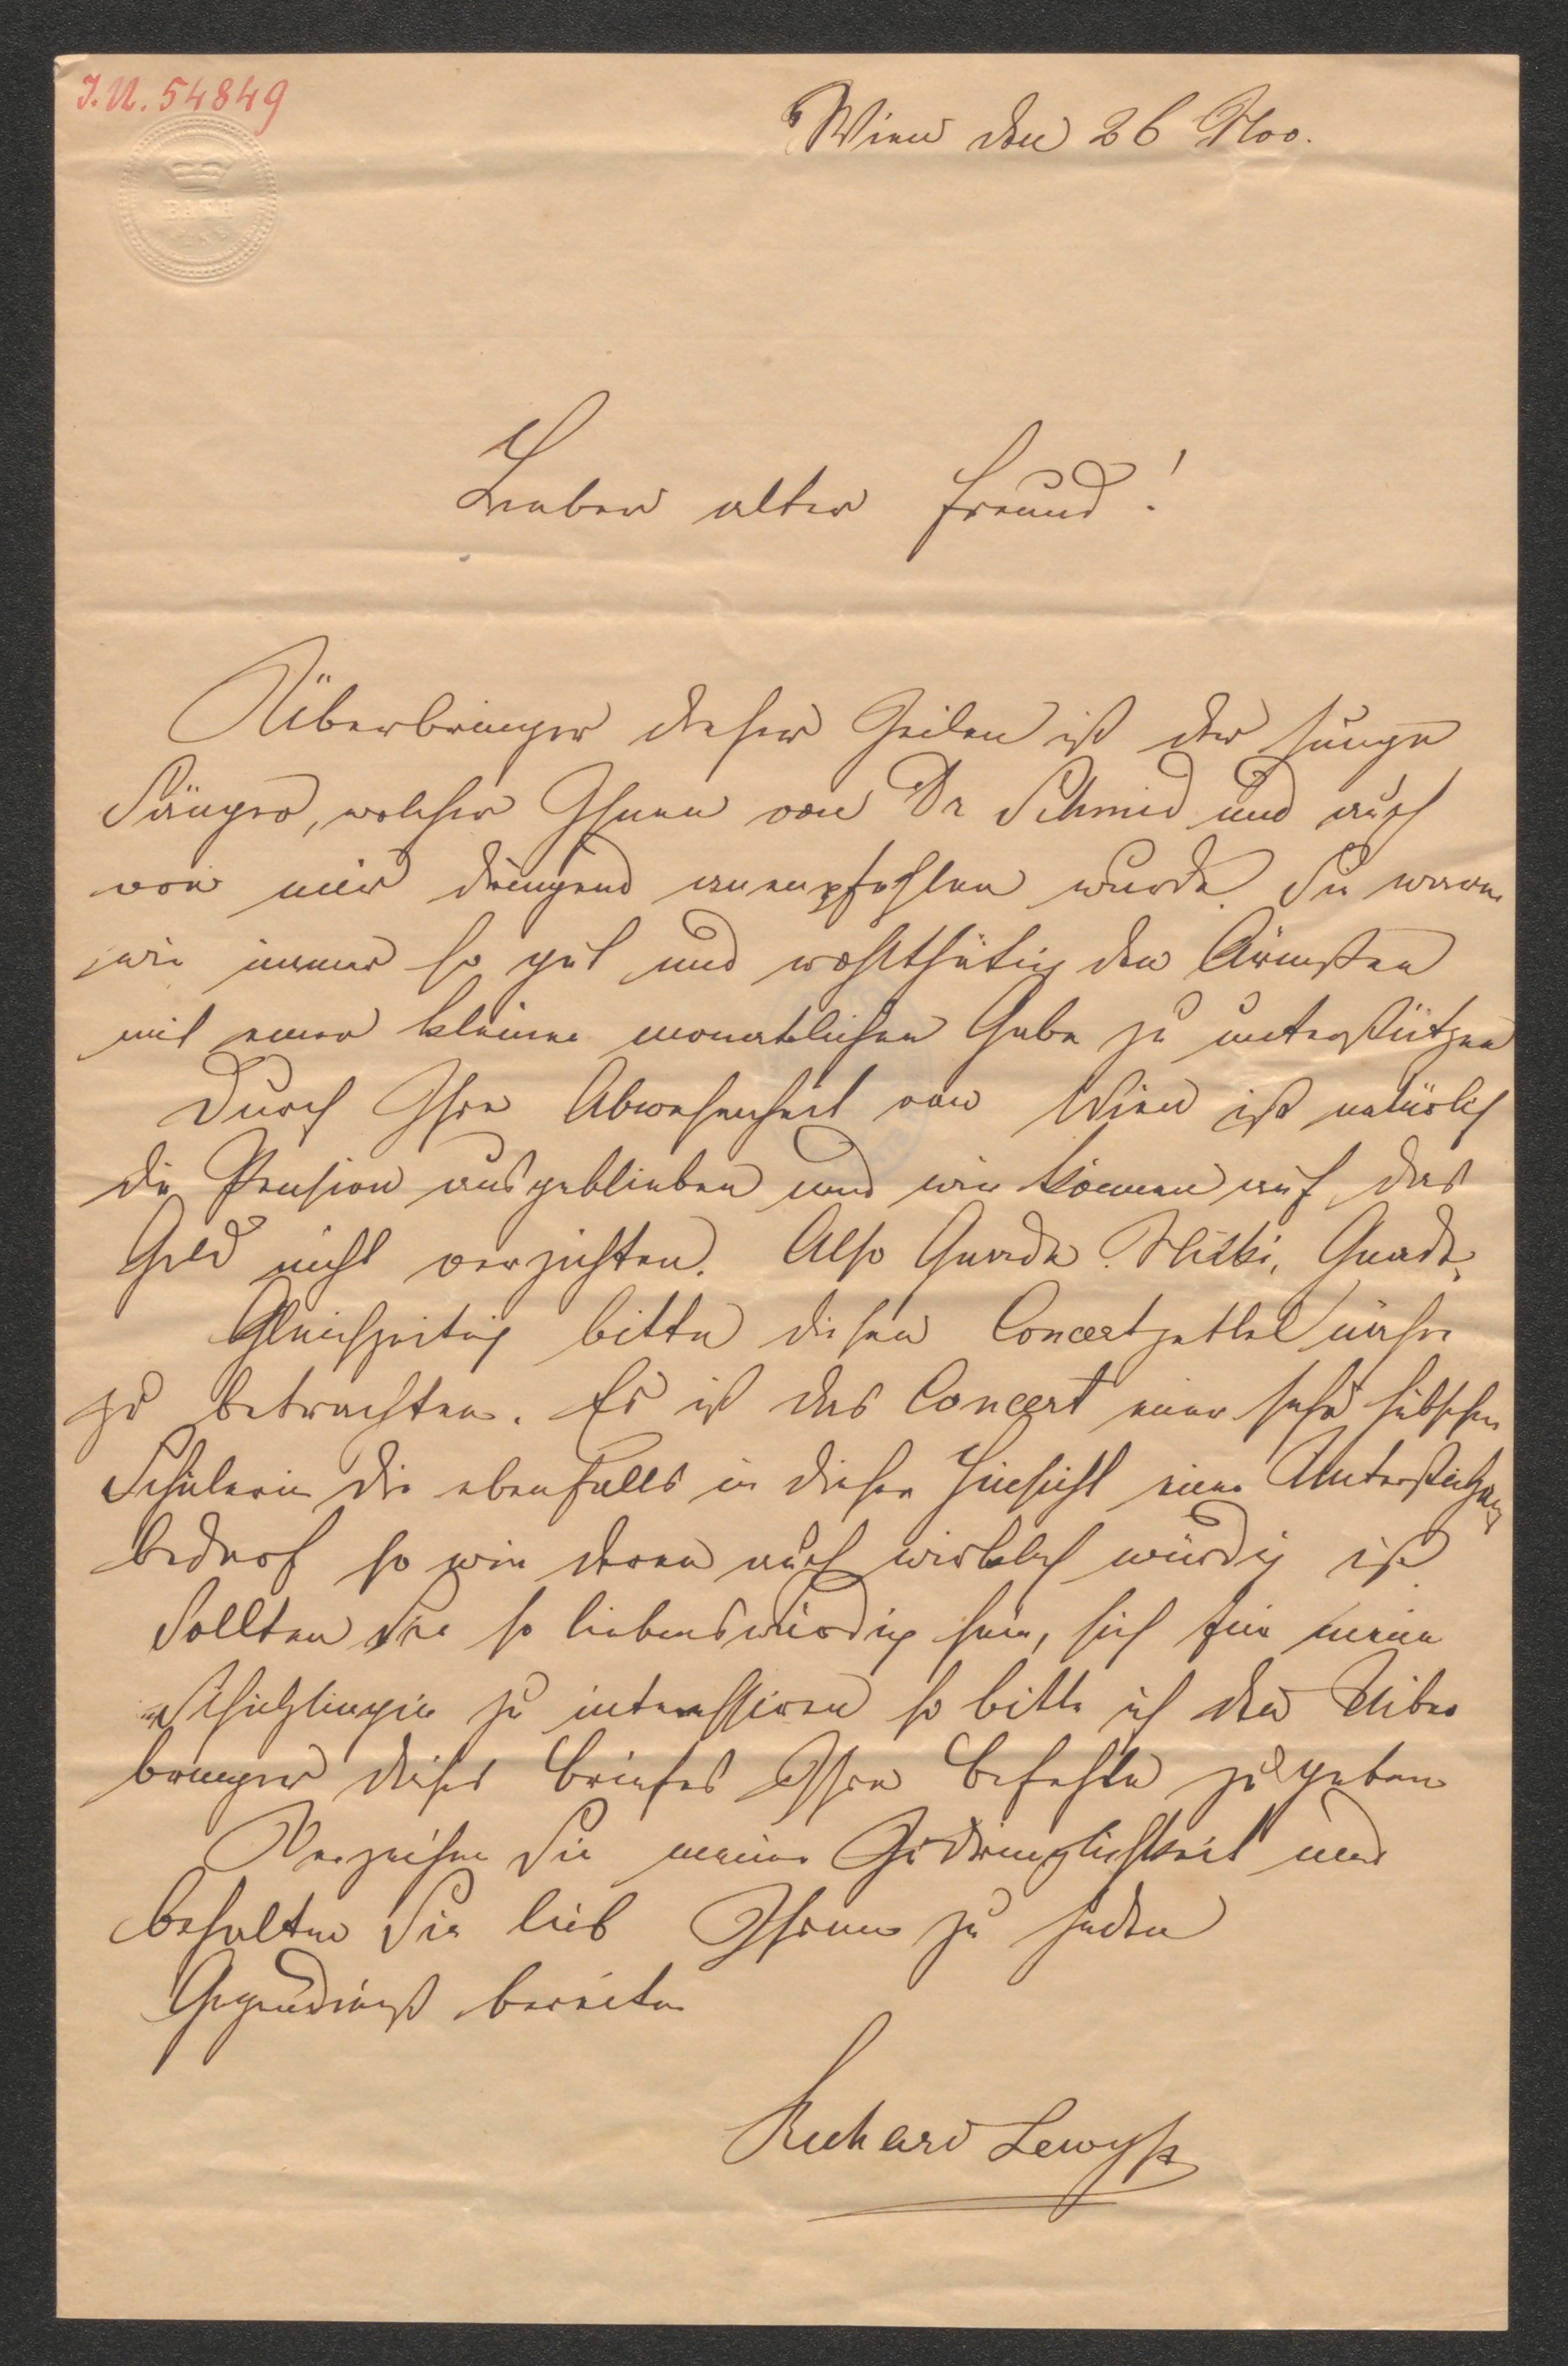 J.N. 54849
Wien den 26 Nov.
Lieber alter Freund!
Überbringer dieser Zeilen ist der junge
Sänger, welcher Ihnen von Dr Schmid und auch
von mir dringend anempfohlen wurde. Sie waren
wie immer so gut und wohlthätig den Ärmsten
mit einer kleinen monatlichen Gabe zu unterstützen
Durch Ihre Abwesenheit von Wien ist natürlich
die Pension ausgeblieben und wir können auf das
Geld nicht verzichten. Also Gnade Nikki, Gnade.
Gleichzeitig bitte diesen Concertzettel näher
zu betrachten. Es ist das Concert einer sehr hübschen
Schülerin die ebenfalls in dieser Hinsicht einer Unterstützung
bedarf so wie deren auch wirklich würdig ist
Sollten Sie so liebenswürdig sein, sich für meine
Schützlingin zu interessiren so bitte ich den Über
bringer dieses Briefes Ihre Befehle zu geben
Verzeihen Sie meine Zudringlichkeit und
behalten Sie lieb Ihren zu jeden
Gegendienst bereiten
Richard Lewy